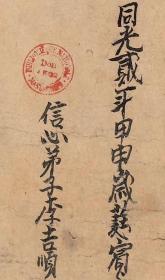 同光貳年甲申歲蕤賓
信心弟子李吉順
DON